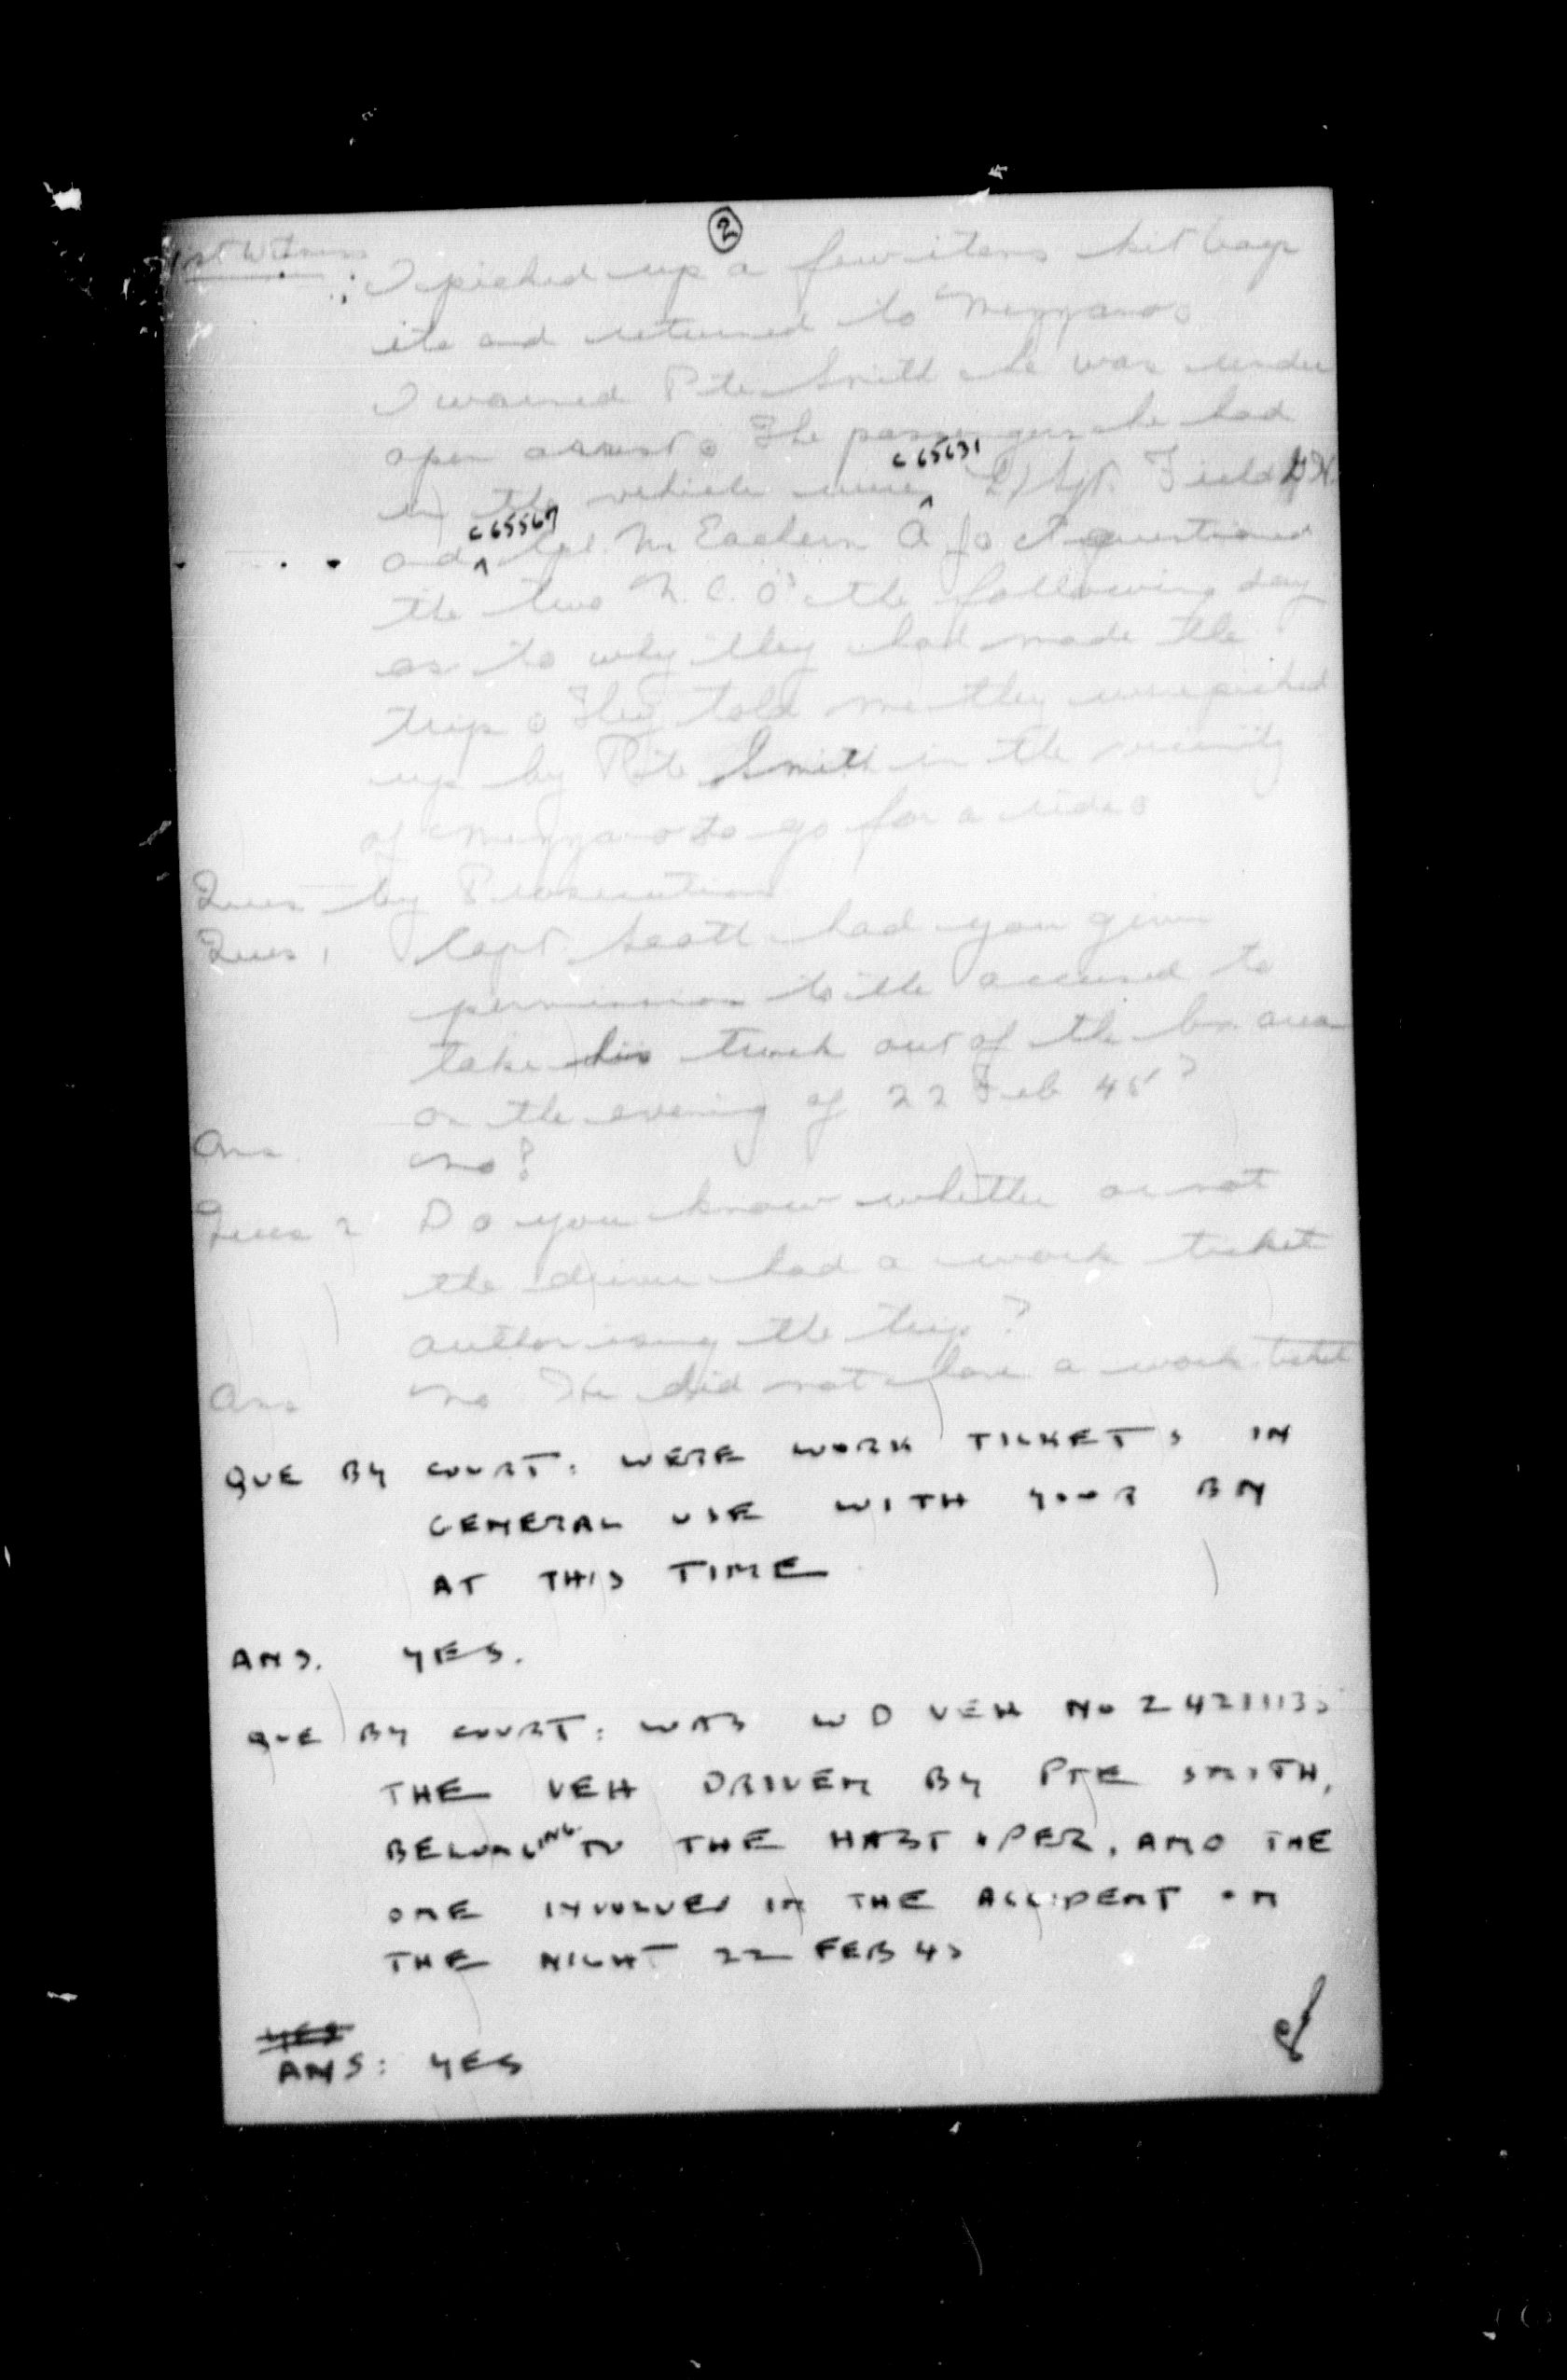 ②
1st Witness
: I picked up a few items kit bags
etc and returned to Mezzano.
I warned Pte Smith he was under
open arrest. The passengers he had
in the vehicle were ^ C 65631 L/Sgt. Field
and ^ C 65567 Cpl. McEachern A J. I questioned
the two N.C.O's the following day
as to why they had made the
trip. They told me they were picked
up by Pte Smith in the vicinity
of Mezzano to go for a ride.
Ques by Prosecution
Ques 1 Capt Scott had you given
permission to the accused to
take his truck out of the bn area
on the evening of 22 Feb 45?
Ans. No!
Ques 2 Do you know whether or not
the driver had a work ticket
authorising the trip?
Ans No He did not have a work ticket
QUE BY COURT: WERE WORK TICKETS IN
GENERAL USE WITH YOUR BN
AT THIS TIME
ANS. YES.
QUE BY COURT: WAS WD VEH No Z 4211135
THE VEH DRIVEN BY PTE SMITH,
BELONGING TO THE HAST & PER, AND THE
ONE INVOLVED IN THE ACCIDENT ON
THE NIGHT 22 FEB 45
YES
ANS: YES